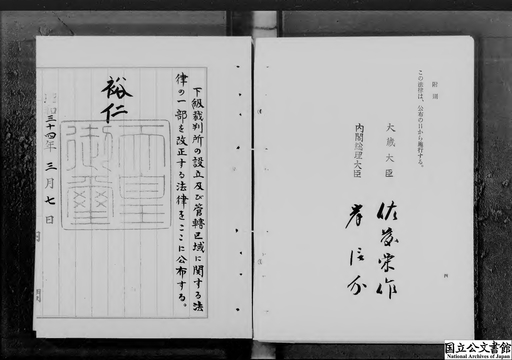 附則
この法律は、公布の日から施行する。
大蔵大臣 佐藤栄作
内閣総理大臣 岸信介
四
下級裁判所の設立及び管轄区域に関する法
律の一部を改正する法律をここに公布する。
裕仁
天皇御璽
昭和三十四年三月七日
国立公文書館
National Archives of Japan